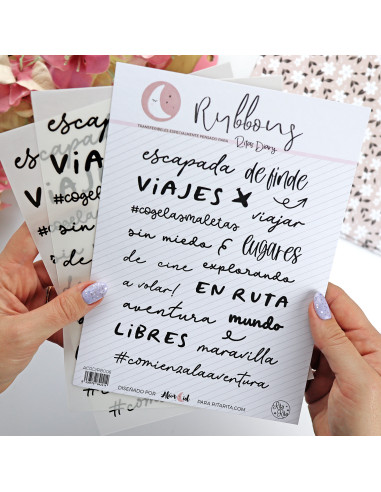 Rubbons
TRANSFERIBLES ESPECIALMENTE PENSADO PARA Ritas Diary
escapada de finde
VIAJES X viajar
#cogelasmaletas
sin miedo & lugares
de cine explorando
a volar! EN RUTA
aventura mundo
LIBRES maravilla
#comienzalaaventura
DISEÑADO POR
PARA RITARITA.COM
escapa
VIA
#coge
sin
de
a